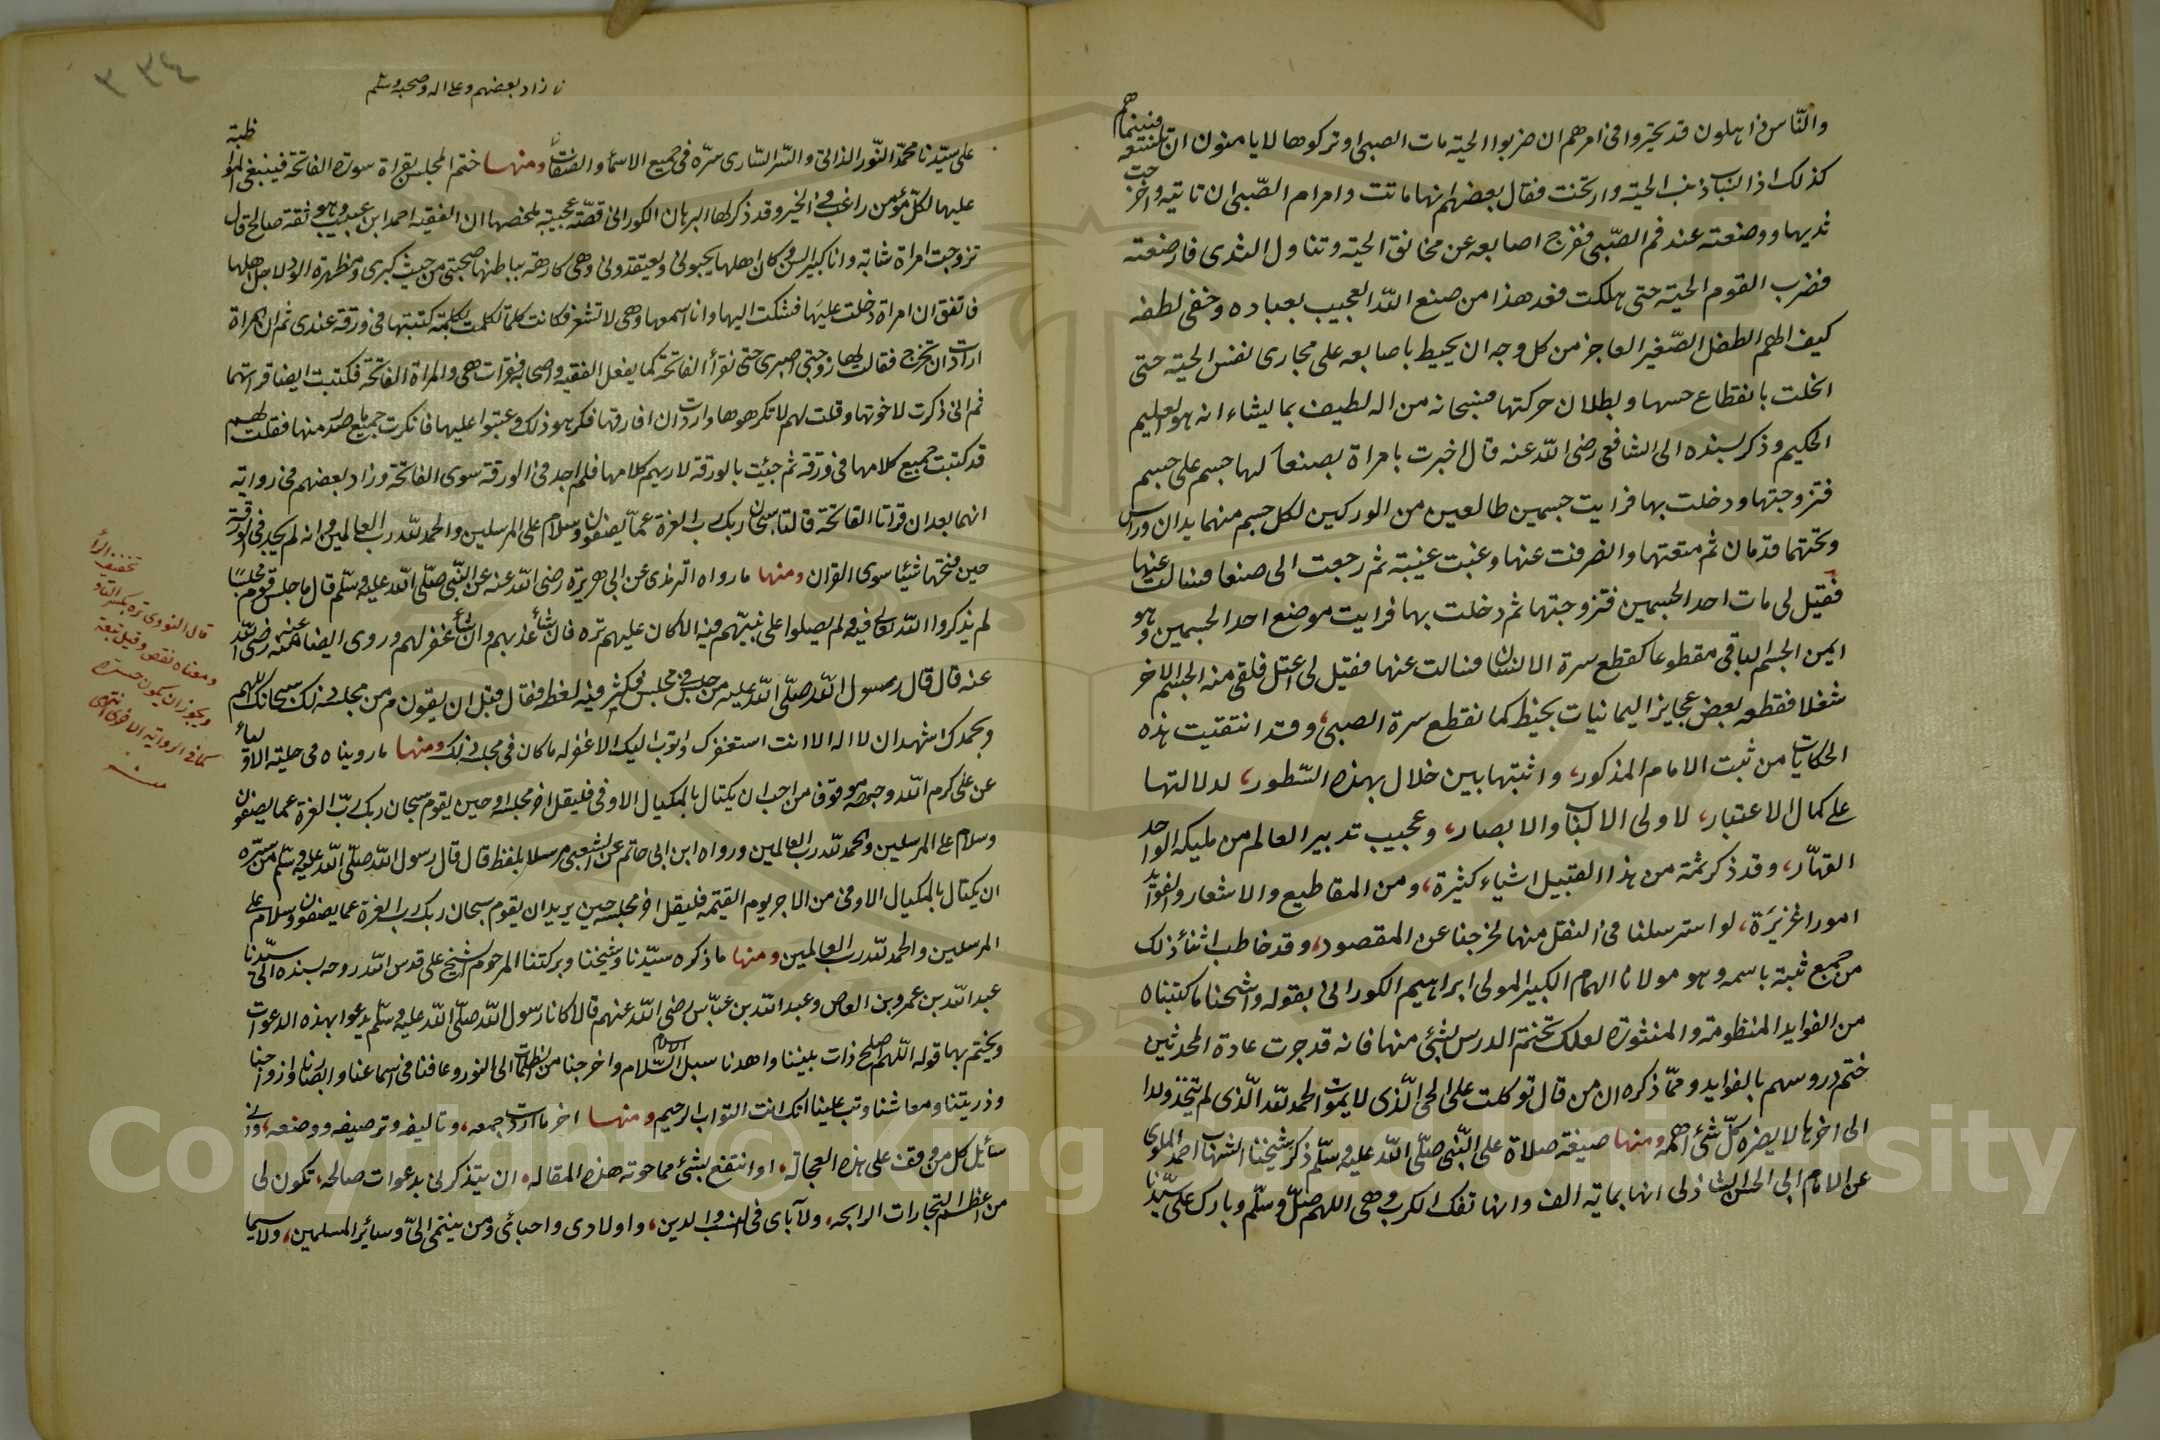 والناس ذاهلون قد تحيروا في امرهم ان ضربوا الحية مات الصبي او تركوها لا يامنون ان تلتقمه فبينما هم
كذلك اذا انساب ذنب الحية وارتخت فقال بعضهم انها ماتت وامر ام الصبي ان تاتيه واخرجت
ثديها ووضعته عند فم الصبي ففرج اصابعه عن مخانق الحية وتناول الثدي فارضعته
فضرب القوم الحية حتى هلكت فعد هذا من صنع الله العجيب بعباده وخفي لطفه
كيف الهم الطفل الصغير العاجز من كل وجه ان يحيط باصابعه على مجاري نفس الحية حتى
انخلت بانقطاع حسها وبطلان حركتها فسبحانه من اله لطيف بما يشاء انه هو العليم
الحكيم وذكر بسنده الى الشافعي رضي الله عنه قال اخبرت بامراة بصنعا لها جسم على جسم
فتزوجتها ودخلت بها فرايت جسمين طالعين من الوركين لكل جسم منهما يدان وراس
وتحتهما قدمان ثم متعتها وانصرفت عنها وغبت غيبة ثم رجعت الى صنعا فسالت عنها
فقيل لي مات احد الجسمين فتزوجتها ثم دخلت بها فرايت موضع احد الجسمين وهو
ايمن الجسم الباقي مقطوعا كقطع سرة الانسان فسالت عنها فقيل لي اعتل فلقي منه الجسم الاخر
شغلا فقطعه بعض عجايز اليمانيات بخيط كما نقطع سرة الصبي، وقد انتقيت هذه
الحكايات من ثبت الامام المذكور، واثبتها بين خلال بهذه السطور، لدلالتها
على كمال الاعتبار، لاولى الالباب والابصار، وعجيب تدبير العالم من مليكه الواحد
القهار، وقد ذكر ثمة من هذا القبيل اشياء كثيرة، ومن المقاطيع والاشعار والفوايد
امورا غزيزة، لو استرسلنا في النقل منها لخرجنا عن المقصود، وقد خاطب اثناء ذلك
من جمع ثبته باسمه وهو مولانا الهمام الكبير المولى ابراهيم الكوراني بقوله واشحنا ما كتبناه
من الفوايد المنظومة والمنثورة لعلك تختم الدرس بشئ منها فانه قد جرت عادة المحدثين
ختم دروسهم بالفوايد ومما ذكره ان من قال توكلت على الحي الذي لا يموت الحمد لله الذي لم يتخذ ولدا
الى اخرها لا يضره كل شئ اهمه ومنها صيغة صلاة على النبي صلى الله عليه وسلم ذكر شيخنا الشهاب احمد الملوي
عن الامام ابي الحسن الشاذلي انها بماية الف وانها تفك الكرب وهي اللهم صل وسلم وبارك على سيدنا
زاد بعضهم وعلى اله وصحبه وسلم
على سيدنا محمد النور الذاتي والسر الساري سره في جميع الاسماء والصفات ومنها ختم المجلس بقراة سورة الفاتحة فينبغي المواظبة
عليها لكل مؤمن راغب في الخير وقد ذكر لها البرهان الكوراني قصة عجيبة ملخصها ان الفقيه احمد ابن عبيب وهو ثقة صالح قال
تزوجت امراة شابة وانا كبير السن وكان اهلها يحبوني ويعتقدوني وهي كارهة بباطنها صحبتي من حيث كبري ومظهرة الود لاجل اهلها
فاتفق ان امراة دخلت عليها فشكت اليها وانا اسمعها وهي لا تشعر فكانت كلما تكلمت بكلمة كتبتها في ورقة عندي ثم ان المراة
ارادت ان تخرج فقالت لها زوجتي اصبري حتى نقرأ الفاتحة كما يفعل الفقيه واصحابه فقرات هي والمراة الفاتحة فكتبت ايضا قراتهما
ثم اني ذكرت لاخوتها وقلت لهم لا تكرهوها واردت ان افارقها فكرهو ذلك وعتبوا عليها فانكرت جميع ما صدر منها فقلت لهم
قد كتبت جميع كلامها في ورقة ثم جيئت بالورقة لاريهم كلامها فلم اجد في الورقة سوى الفاتحة وزاد بعضهم في روايته
انهما بعد ان قراتا الفاتحة قالتا سبحان ربك رب العزة عما يصفون وسلام على المرسلين والحمد لله رب العالمين وانه لم يجد في الورقة
حين فتحها شيئا سوى القران ومنها ما رواه الترمذي عن ابي هريرة رضي الله عنه عن النبي صلى الله عليه وسلم قال ما جلس قوم مجلسا
لم يذكروا الله تعالى فيه ولم يصلوا على نبيهم فيه الا كان عليهم ترة فان شاء عذبهم وان شاء غفر لهم وروى ايضا عنه رضي الله
عنه قال قال رسول الله صلى الله عليه من جلس في مجلس فكثر فيه لغطه فقال قبل ان يقوم من مجلسه ذلك سبحانك اللهم
وبحمدك اشهد ان لا اله الا انت استغفرك واتوب اليك الا غفر له ما كان في مجلسه ذلك ومنها ما رويناه في حلية الاوليا
عن علي كرم الله وجهه موقوفا من احب ان يكتال بالمكيال الاوفى فليقل اخر مجلسه او حين يقوم سبحان ربك رب العزة عما يصفون
وسلام على المرسلين والحمد لله رب العالمين ورواه ابن ابي حاتم عن الشعبي مرسلا بلفظ قال قال رسول الله صلى الله عليه وسلم من سره
ان يكتال بالمكيال الاوفى من الاجر يوم القيمة فليقل اخر مجلسه حين يريد ان يقوم سبحان ربك رب العزة عما يصفون وسلام على
المرسلين والحمد لله رب العالمين ومنها ما ذكره سيدنا وشيخنا وبركتنا المرحوم الشيخ علي قدس الله روحه بسنده الى سيدنا
عبد الله بن عمرو بن العاص وعبد الله بن عباس رضي الله عنهم قالا كان رسول الله صلى الله عليه وسلم يدعوا بهذه الدعوات
ويختم بها قوله اللهم اصلح ذات بيننا واهدنا سبل السلام واخرجنا من الظلمات الى النور وعافنا في اسماعنا وابصارنا وازواجنا
وذريتنا ومعاشنا وتب علينا انك انت التواب الرحيم ومنها اخر ما اردت جمعه، وتاليفه وترصيفه ووضعه،
سائل كل من وقف على هذه العجالة، او انتفع بشئ مما حوته هذه المقالة، ان يتذكرني بدعوات صالحه، تكون لي
من اعظم التجارات الرابحه، ولآباي في النسب والدين، واولادي واحبائي ومن ينتمي الي وسائر المسلمين، ولا سيما
قال النووي ترة بكسر التاء وتخفيف الراء
ومعناه نقص وقيل تبعة
ويجوز ان يكون حسرة
كما في الرواية الاخرى انتهى
منه
Copyright © King Saud University